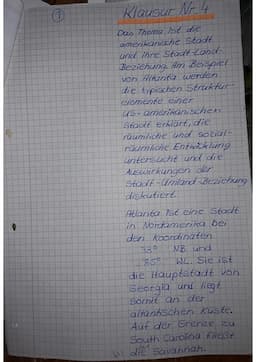 1
Klausur Nr. 4
Das Thema ist die
amerikanische Stadt
und ihre Stadt-Land-
Beziehung. Am Beispiel
von Atlanta werden
die typischen Struktur-
elemente einer
us-amerikanischen
Stadt erklärt, die
räumliche und sozial-
räumliche Entwicklung
untersucht und die
Auswirkungen der
Stadt-Umland-Beziehung
diskutiert.
Atlanta ist eine Stadt
in Nordamerika bei
den Koordinaten
33° NB und
85° WL. Sie ist
die Hauptstadt von
Georgia und liegt
somit an der
atlantischen Küste.
Auf der Grenze zu
South Carolina fließt
die Savannah.